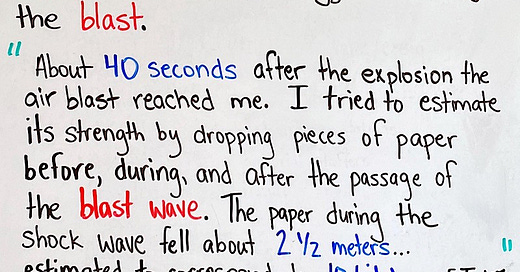 the blast.
"
About 40 seconds after the explosion the
air blast reached me. I tried to estimate
its strength by dropping pieces of paper
before, during, and after the passage of
the blast wave. The paper during the
shock wave fell about 2 1/2 meters... "
estimated to